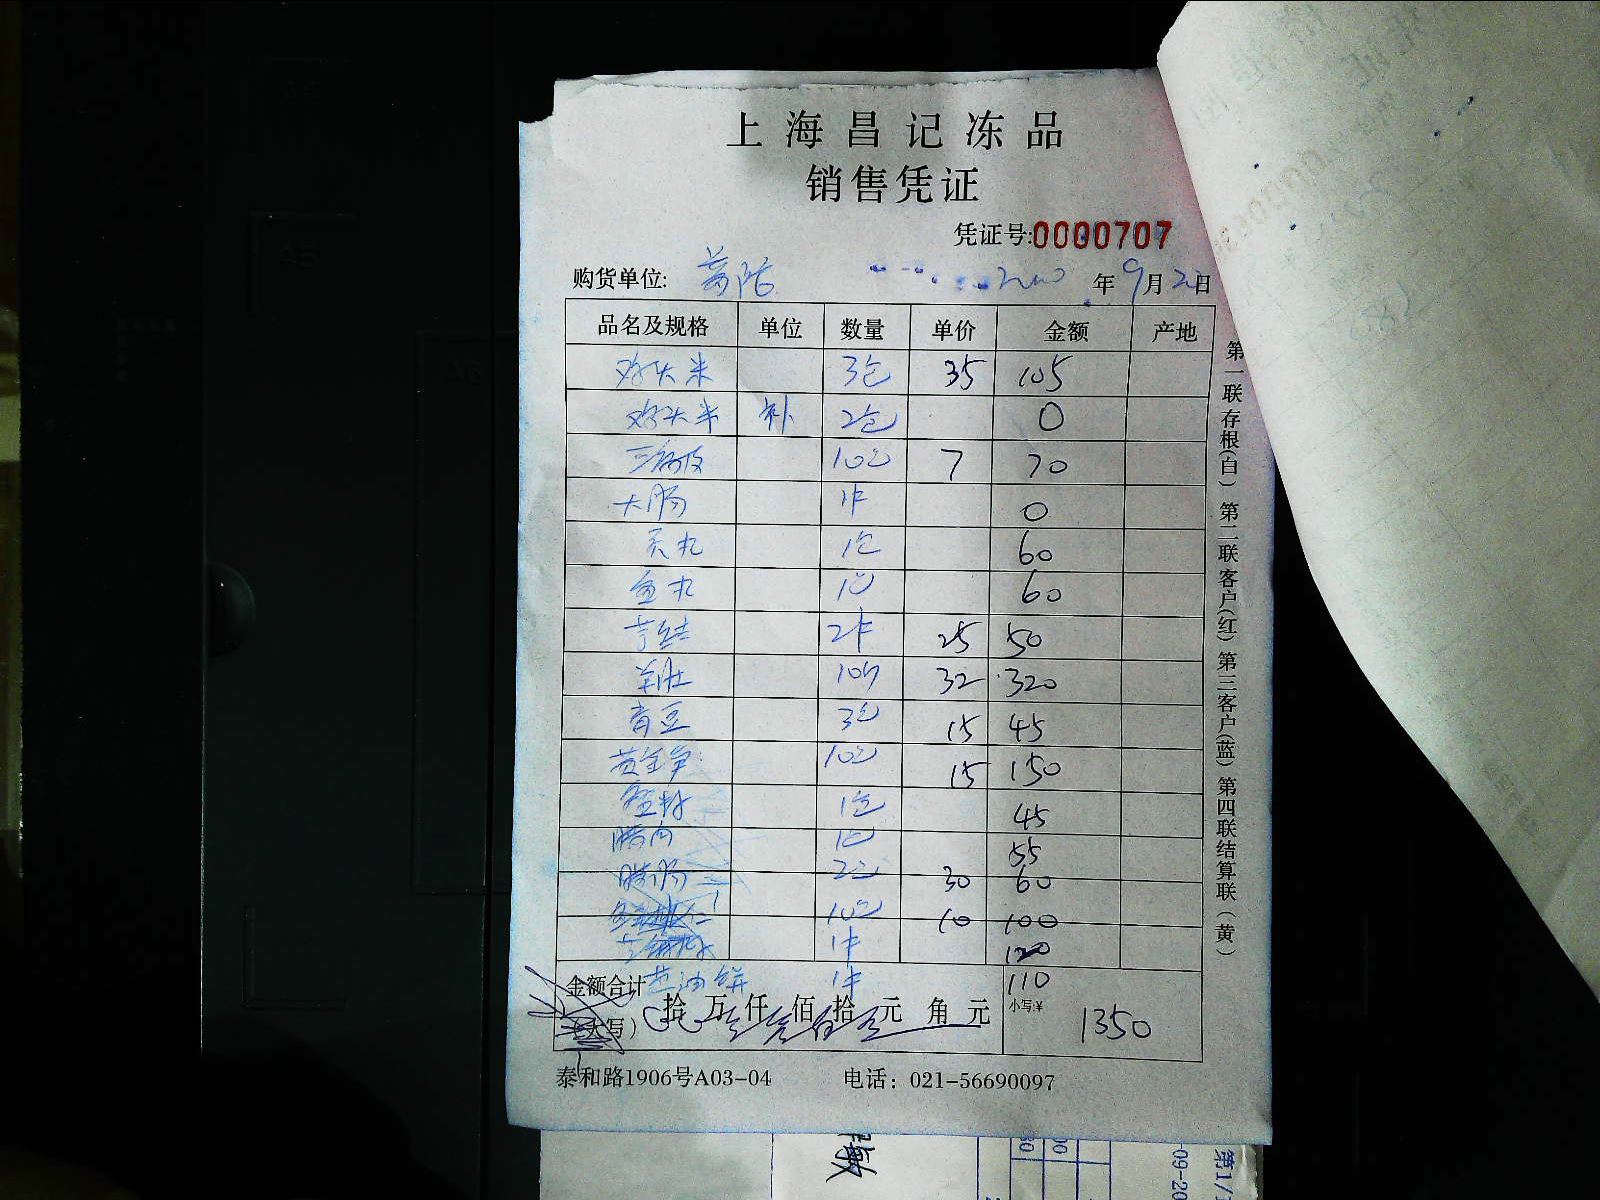 上海昌记冻品
销售凭证
凭证号:0000707
购货单位: 年9月2日
品名及规格 单位 数量 单价 金额 产地
鸡头米 3包 35 105
鸡头米 补 2包 0
10包 7 70
大肠 1件 0
1包 60
鱼丸 1包 60
2件 25 50
羊肚 10 32 320
青豆 3包 15 45
黄金笋 10包 15 150
1包 45
腊肉 1包 55
腊肠 2包 30 60
10包 10 100
1件 120
葱油饼 1件 110
金额合计
(大写) 拾万仟佰拾元角元 小写:¥ 1350
泰和路1906号A03-04 电话: 021-56690097
第一联存根(白) 第二联客户(红) 第三客户(蓝) 第四联结算联(黄)